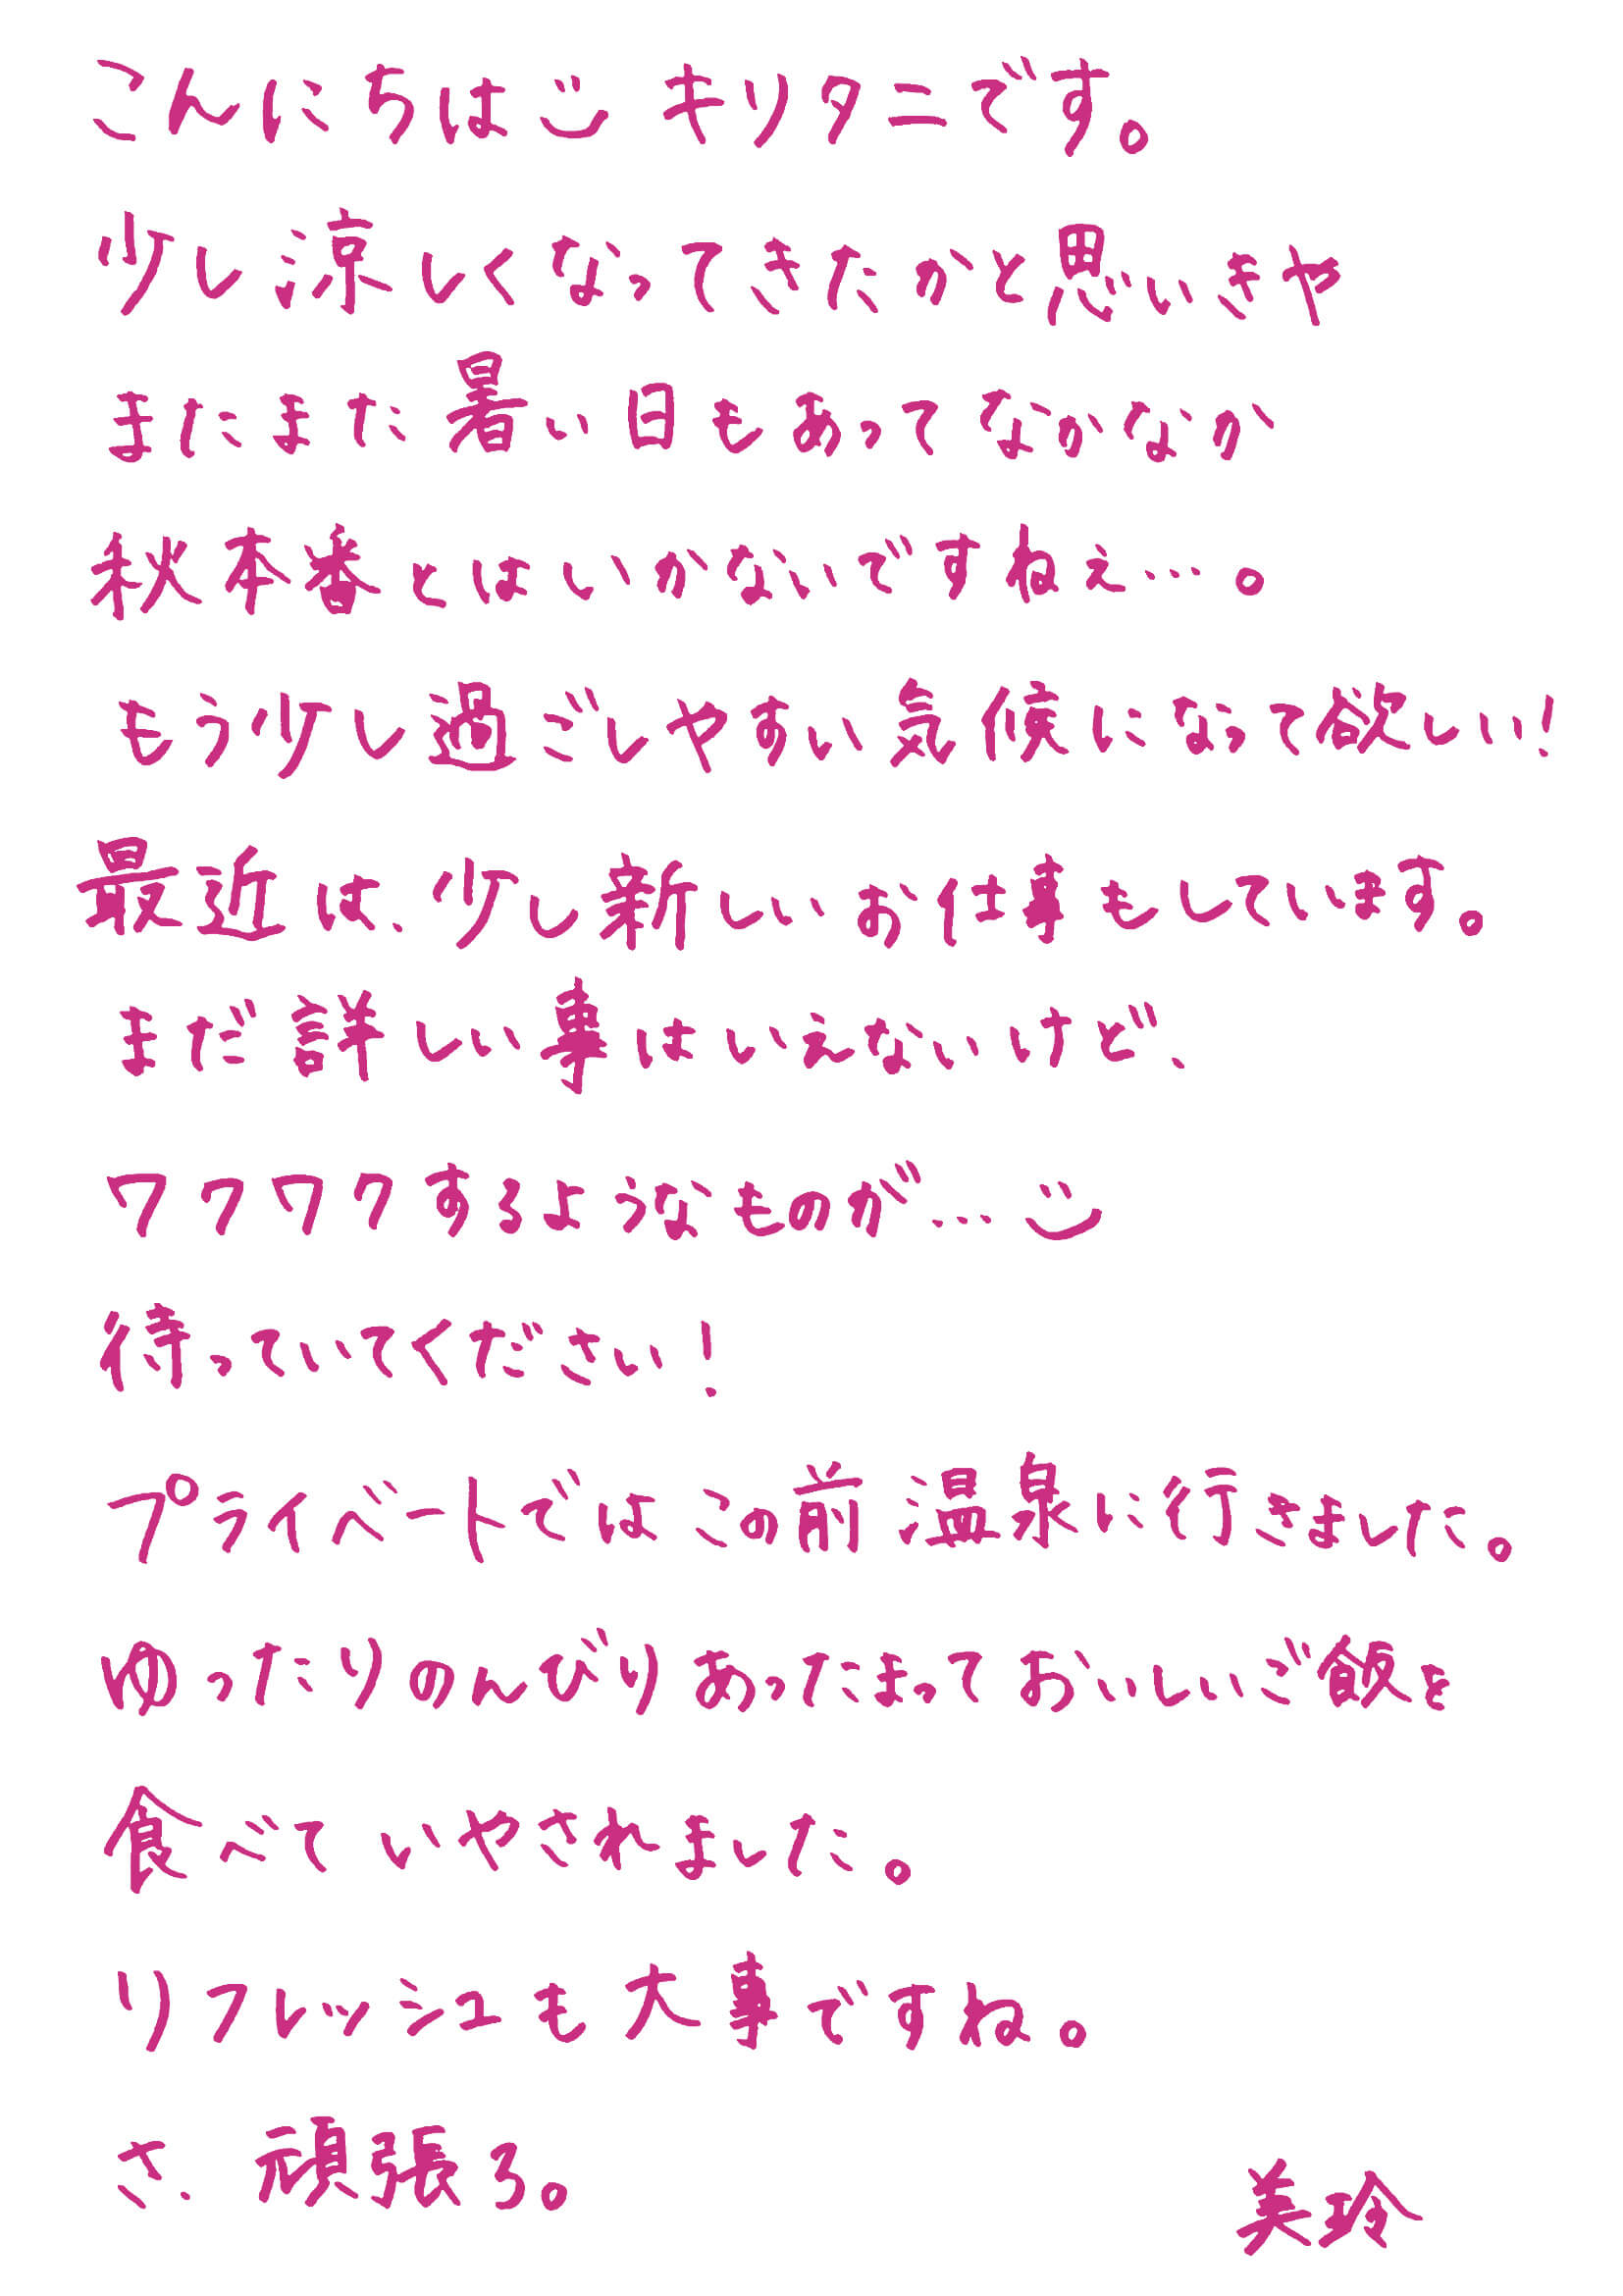 こんにちは キリタニです。
少し涼しくなってきたかと思いきや
またまた暑い日もあってなかなか
秋本番とはいかないですねぇ…。
もう少し過ごしやすい気候になって欲しい!
最近は、少し新しいお仕事もしています。
まだ詳しい事はいえないけど、
ワクワクするようなものが…
待っていてください!
プライベートではこの前温泉に行きました。
ゆったりのんびりあったまっておいしいご飯を
食べていやされました。
リフレッシュも大事ですね。
さ、頑張ろ。
美玲